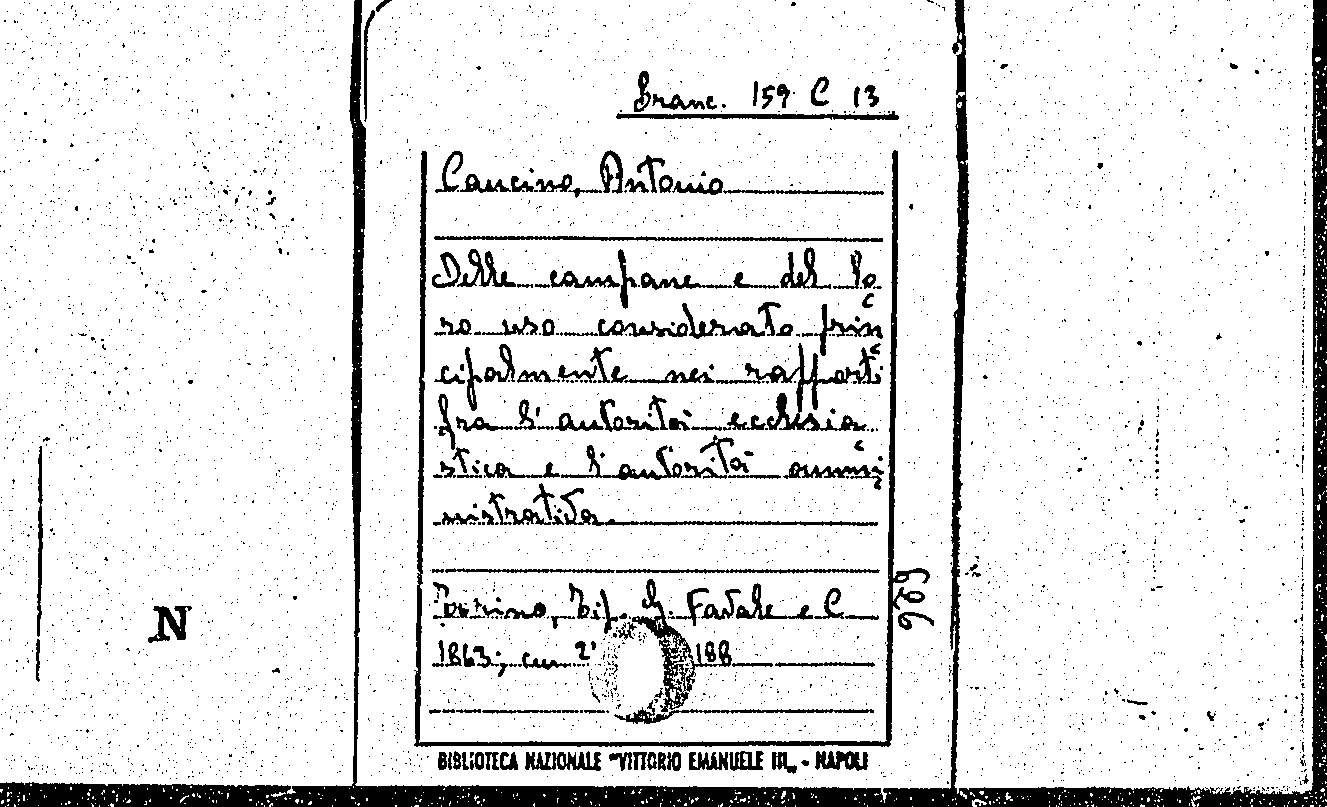 Branc. 159 C 13
Cancino, Antonio
Delle campane e del lo
ro uso considerato prin
cipalmente nei rapporti
fra l'autorità ecclesia
stica e l'autorità ammi
nistrativa.
Torino, Tip. G. Favale e C
1863; cm 21 188
969
N
BIBLIOTECA NAZIONALE "VITTORIO EMANUELE III" - NAPOLI